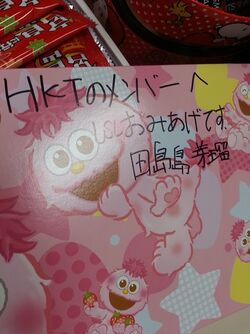 HKTのメンバーへ
USJおみあげです
田島島 芽瑠